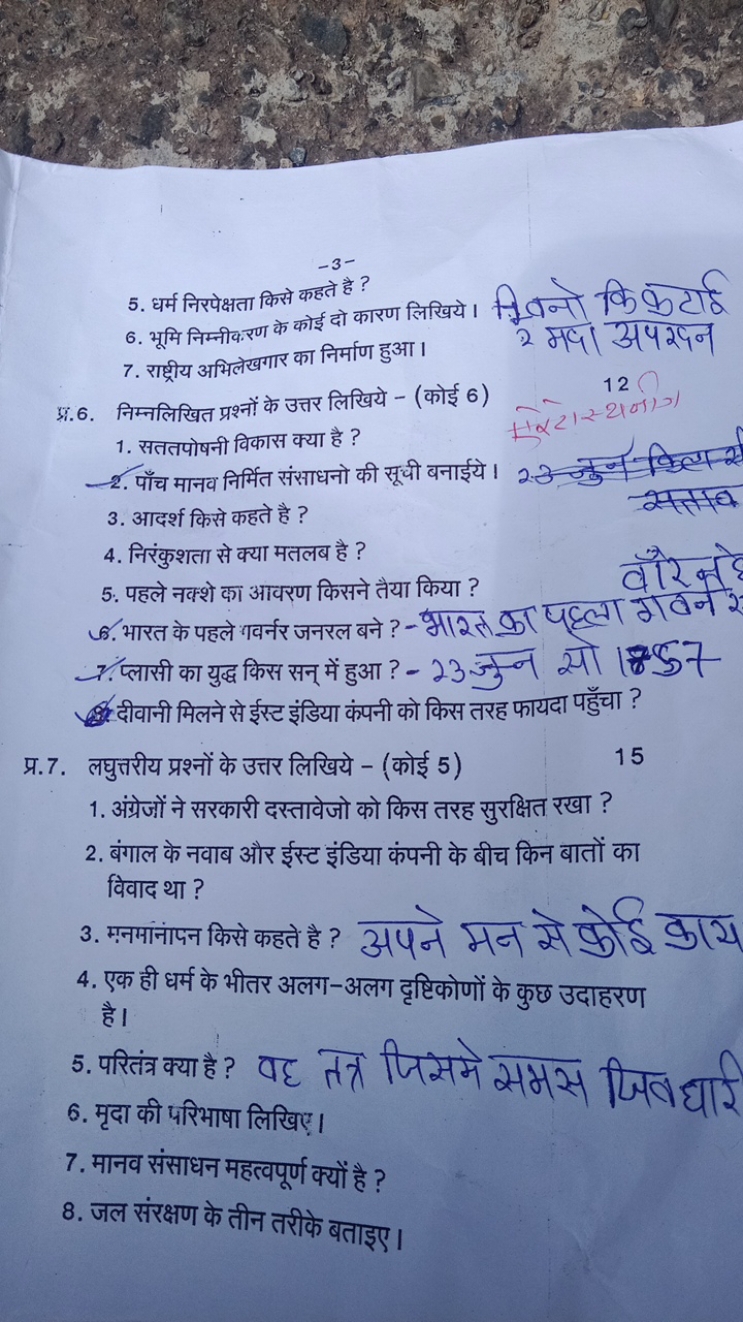 -3-
5. धर्म निरपेक्षता किसे कहते है ?
6. भूमि निम्नीकरण के कोई दो कारण लिखिये । कि कटाई
7. राष्ट्रीय अभिलेखगार का निर्माण हुआ । २ मदा अपरदन
प्र.6. निम्नलिखित प्रश्नों के उत्तर लिखिये – (कोई 6) 12
1. सततपोषनी विकास क्या है ?
2. पाँच मानव निर्मित संसाधनो की सूची बनाईये । 23 जुन
3. आदर्श किसे कहते है ?
4. निरंकुशता से क्या मतलब है ?
5. पहले नक्शे का आवरण किसने तैया किया ?
6. भारत के पहले गवर्नर जनरल बने ? - भारत का पहला गवर्न
7. प्लासी का युद्ध किस सन् में हुआ ? - 23 जुन
8. दीवानी मिलने से ईस्ट इंडिया कंपनी को किस तरह फायदा पहुँचा ?
प्र.7. लघुत्तरीय प्रश्नों के उत्तर लिखिये – (कोई 5) 15
1. अंग्रेजों ने सरकारी दस्तावेजो को किस तरह सुरक्षित रखा ?
2. बंगाल के नवाब और ईस्ट इंडिया कंपनी के बीच किन बातों का
विवाद था ?
3. मनमानापन किसे कहते है ? अपने मन से कोई काय
4. एक ही धर्म के भीतर अलग-अलग दृष्टिकोणों के कुछ उदाहरण
है ।
5. परितंत्र क्या है ? वह तत्र जिसमे समस जिवधारी
6. मृदा की परिभाषा लिखिए ।
7. मानव संसाधन महत्वपूर्ण क्यों है ?
8. जल संरक्षण के तीन तरीके बताइए ।